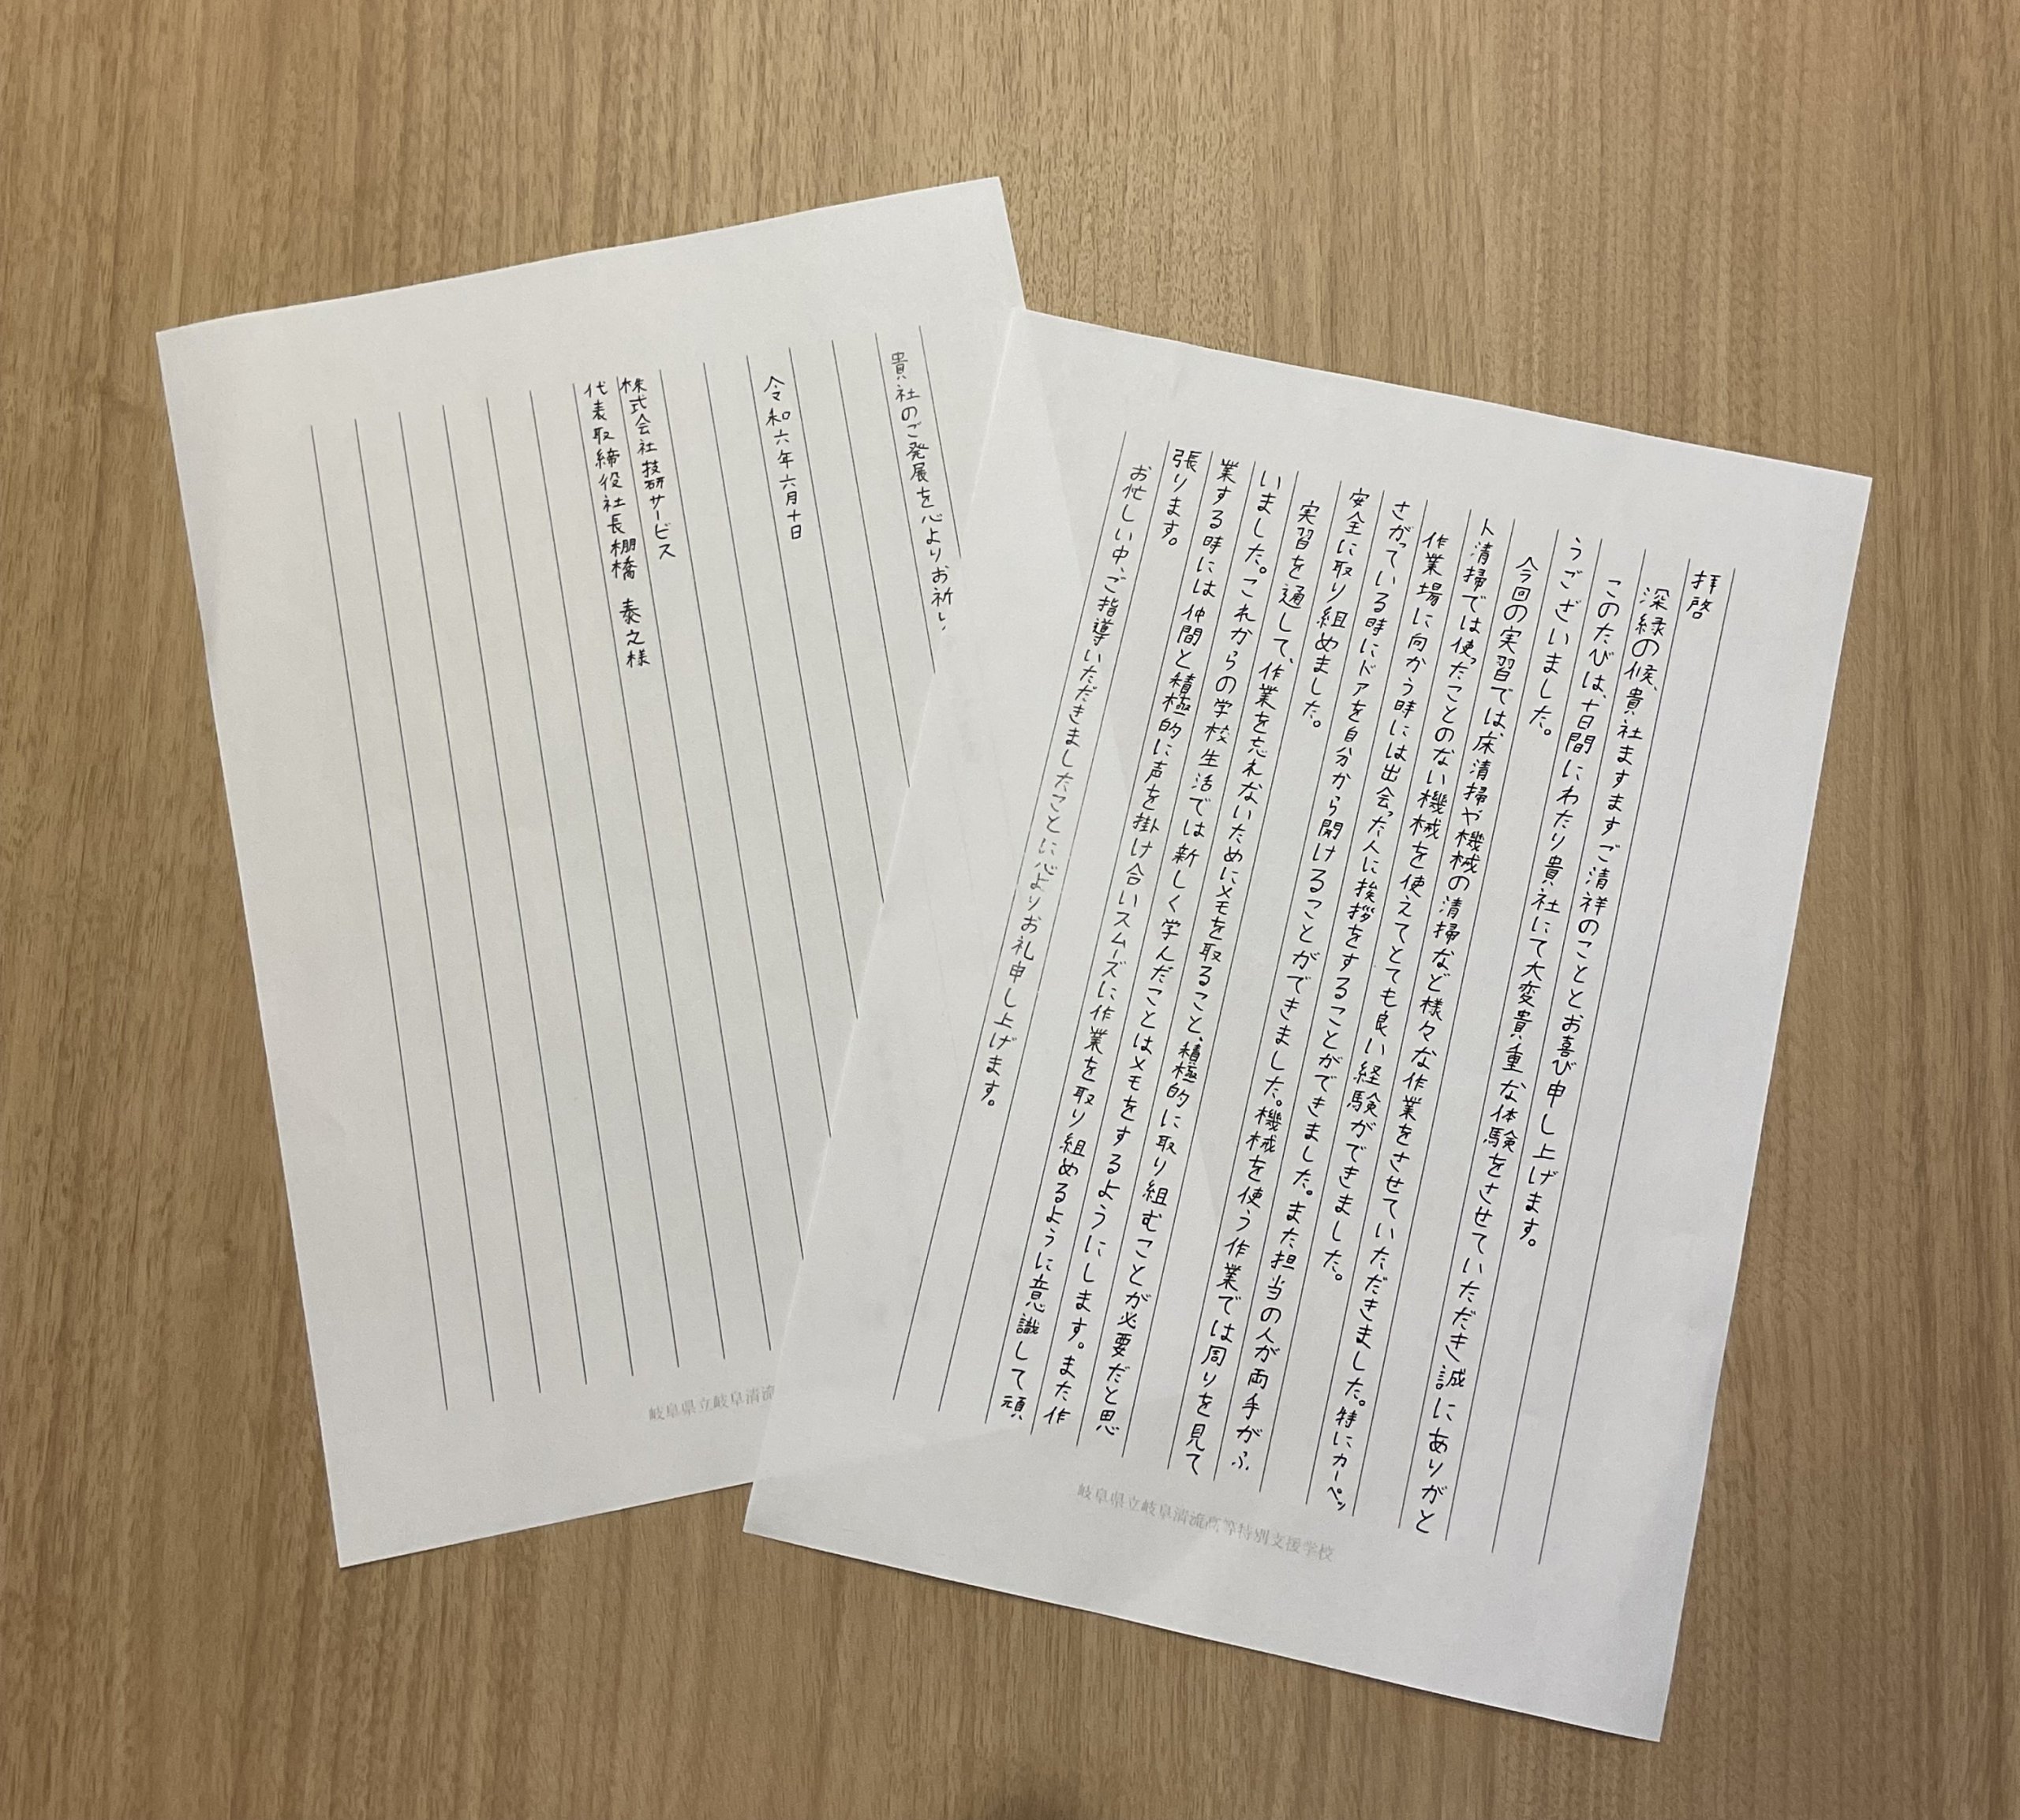 拝啓
深緑の候、貴社ますますご清祥のこととお喜び申し上げます。
このたびは、十日間にわたり貴社にて大変貴重な体験をさせていただき誠にありがと
うございました。
今回の実習では、床清掃や機械の清掃など様々な作業をさせていただきました。特にカーペッ
ト清掃では使ったことのない機械を使えてとても良い経験ができました。
作業場に向かう時には出会った人に挨拶をすることができました。また担当の人が両手がふ
さがっている時にドアを自分から開けることができました。機械を使う作業では周りを見て
安全に取り組めました。
実習を通して、作業を忘れないためにメモを取ること、積極的に取り組むことが必要だと思
いました。これからの学校生活では新しく学んだことはメモをするようにします。また作
業する時には仲間と積極的に声を掛け合いスムーズに作業を取り組めるように意識して頑
張ります。
お忙しい中、ご指導いただきましたことに心よりお礼申し上げます。
岐阜県立岐阜清流高等特別支援学校
貴社のご発展を心よりお祈りい
令和六年六月十日
株式会社技研サービス
代表取締役社長棚橋 泰之様
岐阜県立岐阜清流